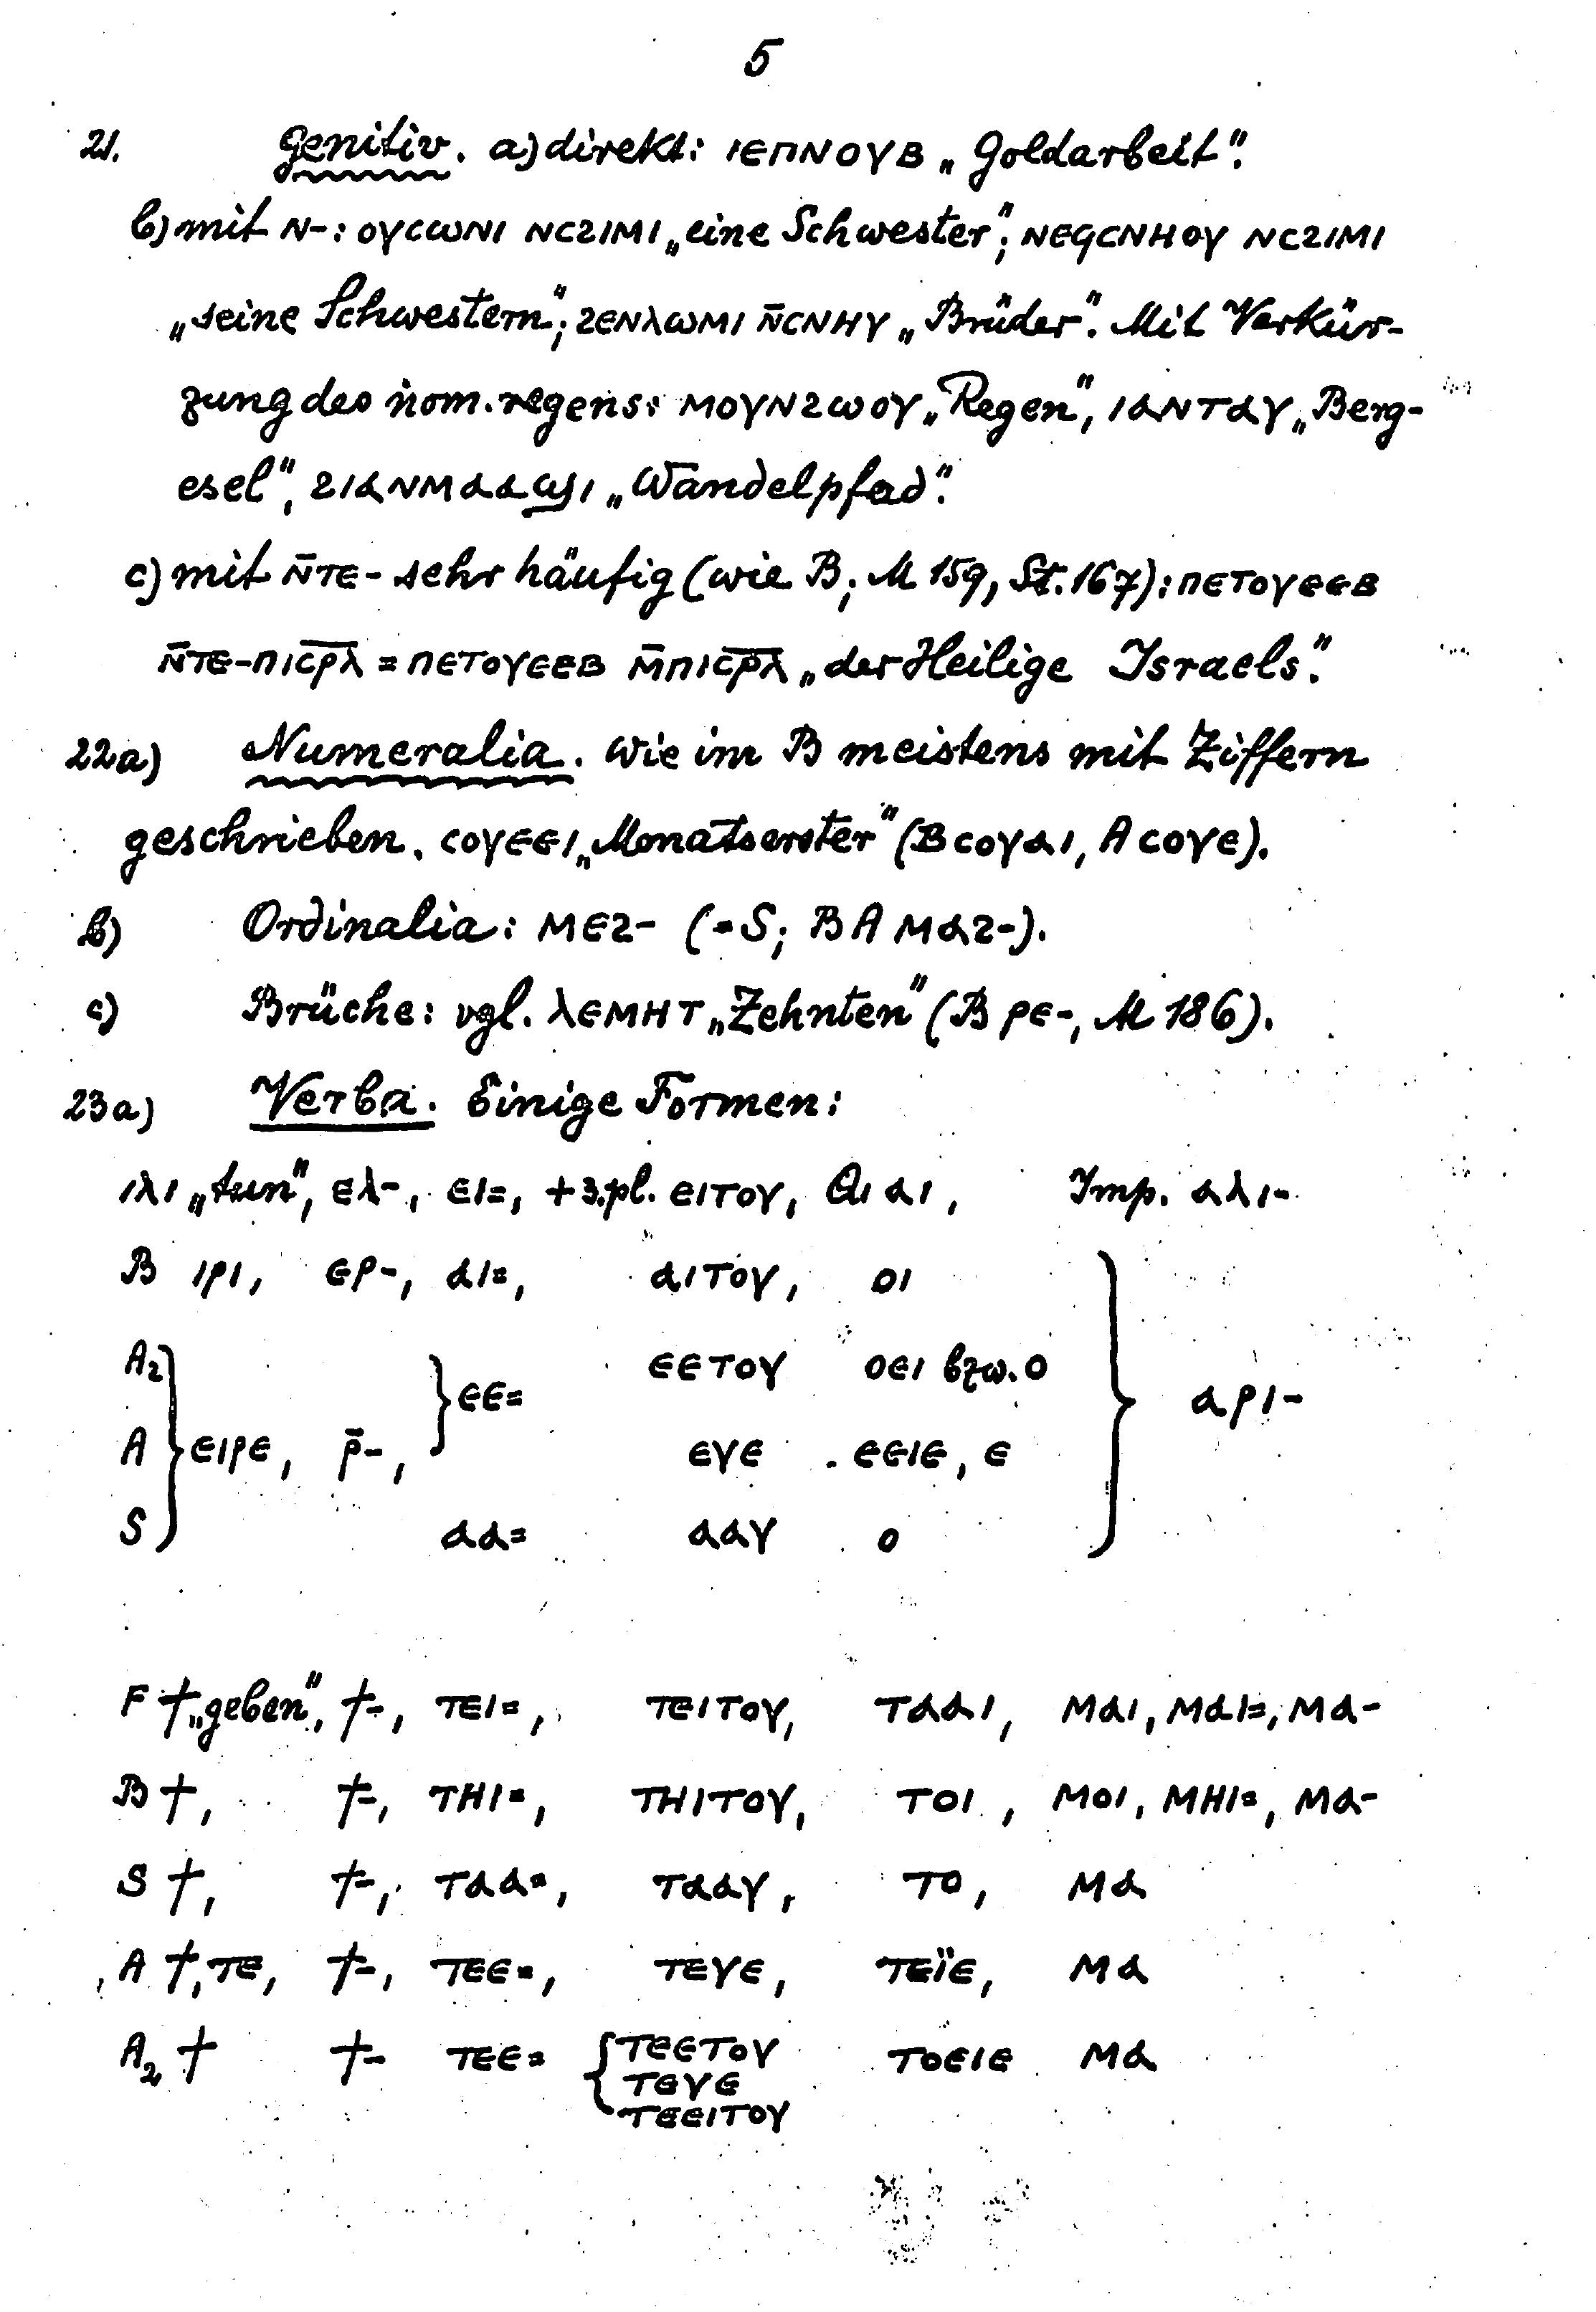 5
21. Genitiv. a) direkt: ⲓⲉⲡⲛⲟⲩⲃ „Goldarbeit“.
b) mit ⲛ-: ⲟⲩⲥⲱⲛⲓ ⲛⲥϩⲓⲙⲓ „eine Schwester“; ⲛⲉϥⲥⲛⲏⲟⲩ ⲛⲥϩⲓⲙⲓ
„seine Schwestern“; ϩⲉⲛⲗⲱⲙⲓ ⲛ̄ⲥⲛⲏⲩ „Brüder“. Mit Verkür-
zung des nom. regens: ⲙⲟⲩⲛϩⲱⲟⲩ „Regen“, ⲓⲁⲛⲧⲁⲩ „Berg-
esel“, ϩⲓⲁⲛⲙⲁⲁϣⲓ „Wandelpfad“.
c) mit ⲛ̄ⲧⲉ- sehr häufig (wie B; M 159, St. 167): ⲡⲉⲧⲟⲩⲉⲉⲃ
ⲛ̄ⲧⲉ-ⲡⲓⲥ̅ⲣ̅ⲗ̅ = ⲡⲉⲧⲟⲩⲉⲉⲃ ⲙ̄ⲡⲓⲥ̅ⲣ̅ⲗ̅ „der Heilige Israels“.
22a) Numeralia. Wie im B meistens mit Ziffern
geschrieben. ⲥⲟⲩⲉⲉⲓ „Monatserster“ (B ⲥⲟⲩⲁⲓ, A ⲥⲟⲩⲉ).
b) Ordinalia: ⲙⲉϩ- (=S; B A ⲙⲁϩ-).
c) Brüche: vgl. ⲗⲉⲙⲏⲧ „Zehnten“ (B ⲣⲉ-, M 186).
23a) Verba. Einige Formen:
ⲓⲗⲓ „tun“, ⲉⲗ-, ⲉⲓ=, +3.pl. ⲉⲓⲧⲟⲩ, Q ⲁⲓ, Imp. ⲁⲗⲓ-
B ⲓⲣⲓ, ⲉⲣ-, ⲁⲓ=, ⲁⲓⲧⲟⲩ, ⲟⲓ
A₂ ⲉⲉⲧⲟⲩ ⲟⲉⲓ bzw. ⲟ
ⲉⲉ= ⲁⲣⲓ-
A ⲉⲓⲣⲉ, ⲣ̄-, ⲉⲩⲉ ⲉⲉⲓⲉ, ⲉ
S ⲁⲁ= ⲁⲁⲩ ⲟ
F ϯ „geben“, ϯ-, ⲧⲉⲓ=, ⲧⲉⲓⲧⲟⲩ, ⲧⲁⲁⲓ, ⲙⲁⲓ, ⲙⲁⲓ=, ⲙⲁ-
B ϯ, ϯ-, ⲧⲏⲓ=, ⲧⲏⲓⲧⲟⲩ, ⲧⲟⲓ, ⲙⲟⲓ, ⲙⲏⲓ=, ⲙⲁ-
S ϯ, ϯ-, ⲧⲁⲁ=, ⲧⲁⲁⲩ, ⲧⲟ, ⲙⲁ
A ϯ, ⲧⲉ, ϯ-, ⲧⲉⲉ=, ⲧⲉⲩⲉ, ⲧⲉⲓ̈ⲉ, ⲙⲁ
A₂ ϯ ϯ- ⲧⲉⲉ= ⲧⲉⲉⲧⲟⲩ ⲧⲟⲉⲓⲉ ⲙⲁ
ⲧⲉⲩⲉ
ⲧⲉⲉⲓⲧⲟⲩ